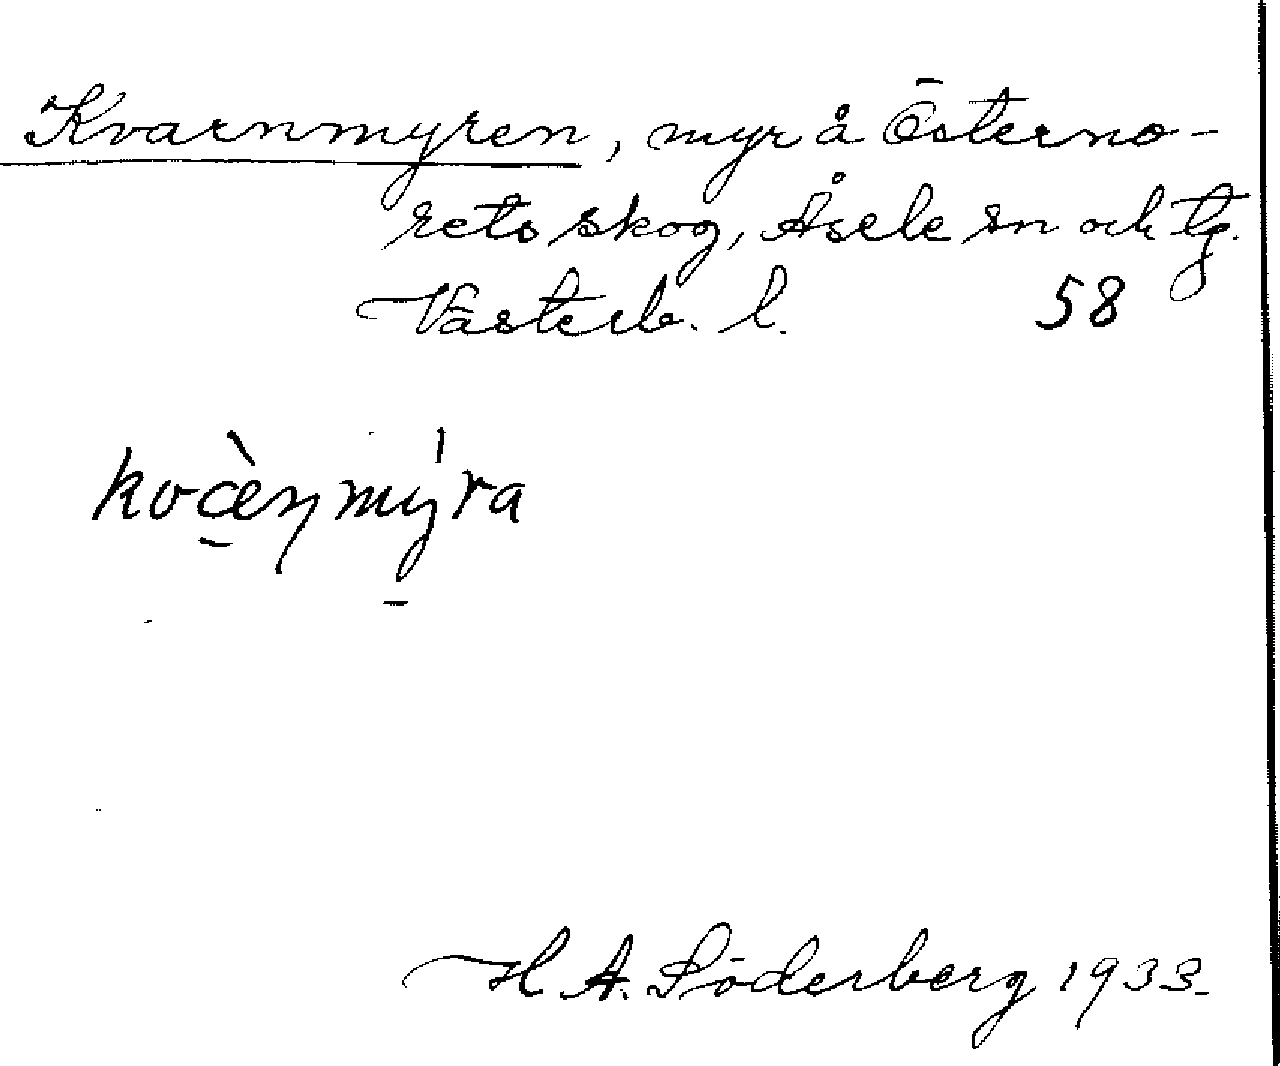 Kvarnmyren, myr å Österno-
rets skog, Åsele sn och tg.
Västerb. l. 58
H A. Söderberg 1933.